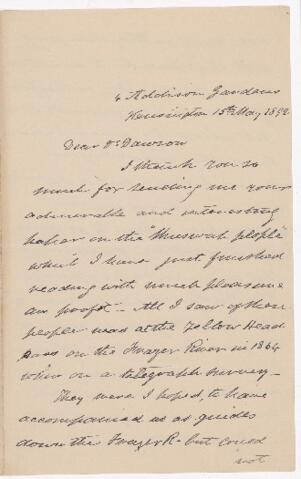 4 Addison Gardens
Kensington 15th May 1892
Dear Dr Dawson
I thank you so
much for sending me your
admirable and interesting
paper on the "Shuswap people"
which I have just finished
reading with much pleasure
and profit - All I saw of these
people was at the Yellow Head
Pass on the Frazer River in 1864
when on a telegraph survey -
They were I hoped, to have
accompanied us as guides
down the Frazer R. but could
not